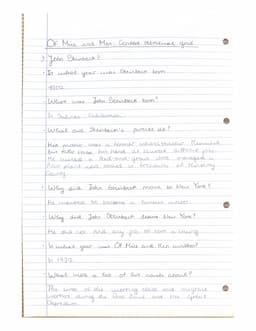 Of Mice and Men Context
John Steinbeck?
In what year was Steinbeck born
1902
Where was John Steinbeck born?
In Salinas California
What did Steinbeck's parents do?
His mother was a former schoolteacher.
but
He owned a feed-and-grain store managed a
flour plant and served as treasurer of
County
Why did John Steinbeck move to New York?
He wanted to become a famous writer
Why did John Steinbeck leave New York?
He did not find any job or
In what year was Of Mice and Men written?
In 1937
What were a lot of his novels about?
The lives of the working class and migrant
workers during the Dust Bowl and the Great
Depression